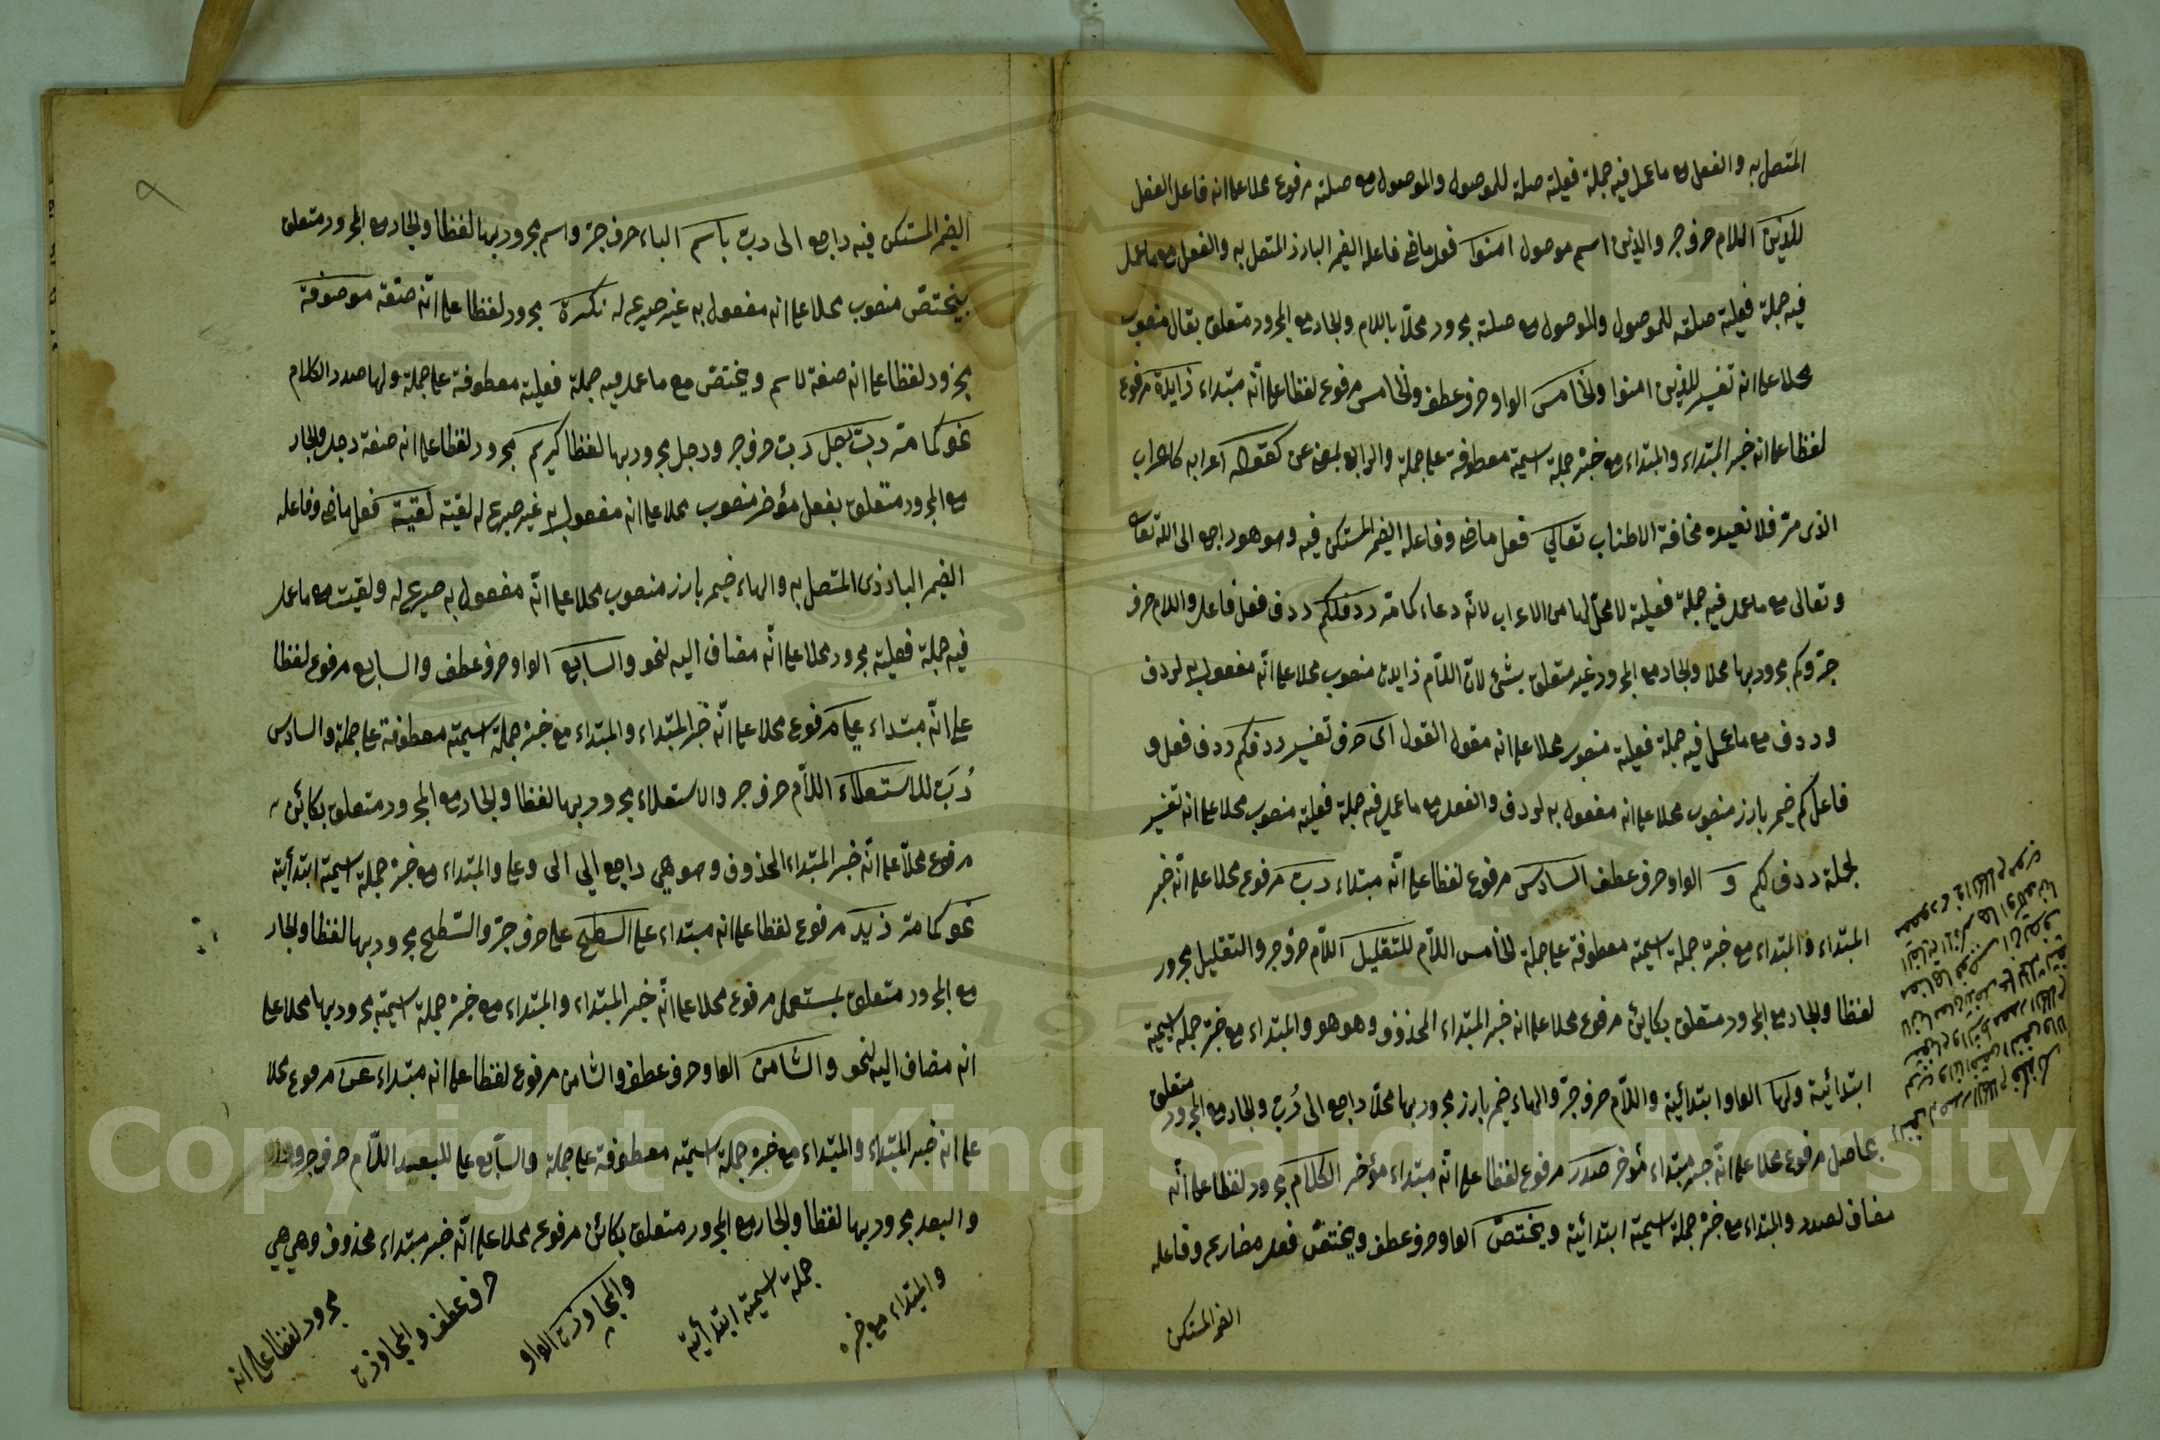 المتصل به والفعل مع ما عمل فيه جملة فعلية صلة للموصول والموصول مع صلته مرفوع محلا على انه فاعل الفعل
للذين اللام حرف جر والذين اسم موصول امنوا فعل ماض فاعله الضمير البارز المتصل به والفعل مع ما عمل
فيه جملة فعلية صلة للموصول والموصول مع صلته مجرور محلا باللام والجار مع المجرور متعلق بقال منصوب
محلا على انه تفسير للذين امنوا والخامس الواو حرف عطف والخامس مرفوع لفظا على انّه مبتداء زايدة مرفوع
لفظا على انه خبر المبتداء والمبتداء مع خبره جملة اسمية معطوفة على جملة والرابع بمعنى عن كقوله اعرابه كالاعراب
الذى مرّ فلا نعيده مخافة الاطناب تعالى فعل ماض وفاعله الضمير المستكن فيه وهو هو راجع الى الله تعا
وتعالى مع ما عمل فيه جملة فعلية لا محل لها من الاعراب لانّه دعاء كما مرّ ردف لكم ردف فعل فاعل واللام حرف
جرّ وكم مجرور بها محلا والجار مع المجرور غير متعلق بشئ لان اللّام زايدة منصوب محلا على انّه مفعول به لردف
وردف مع ما عمل فيه جملة فعلية منصوب محلا على انه مقول القول اى حرف تفسير ردفكم ردف فعل و
فاعل كم ضمير بارز منصوب محلا على انه مفعول به لردف والفعل مع ما عمل فيه جملة فعلية منصوب محلا على انه تفسير
لجملة ردف لكم و الواو حرف عطف السادس مرفوع لفظا على انّه مبتداء ربّ مرفوع محلا على انّه خبر
المبتداء والمبتداء مع خبره جملة اسمية معطوفة على جملة الخامس اللّام للتقليل اللّام حرف جر والتقليل مجرور
لفظا والجار مع المجرور متعلق بكاين مرفوع محلا على انه خبر المبتداء المحذوف وهو هو والمبتداء مع خبره جملة اسمية
ابتدائية ولها الواو ابتدائية واللّام حرف جرّ والهاء ضمير بارز مجرور بها محلّا راجع الى رُبّ والجار مع المجرور متعلق
بحاصل مرفوع محلا على انّه خبر مبتداء مؤخر صدر مرفوع لفظا على انّه مبتداء مؤخر الكلام مجرور لفظا على انّه
مضاف لصدر والمبتداء مع خبره جملة اسمية ابتدائية ويختصّ الواو حرف عطف ويختصّ فعل مضارع وفاعله
الضمير المستكن
الضمير المستكن فيه راجع الى ربّ باسم الباء حرف جرّ واسم مجرور بها لفظا والجار مع المجرور متعلق
بيختصّ منصوب محلا على انه مفعول به غير صريح له نكرة مجرور لفظا على انّه صفة موصوفة
مجرور لفظا على انه صفة لاسم ويختصّ مع ما عمل فيه جملة فعلية معطوفة على جملة ولها صدر الكلام
نحو كما مرّ ربّ رجل ربّ حرف جر ورجل مجرور بها لفظا كريم مجرور لفظا على انه صفة رجل والجار
مع المجرور متعلق بفعل مؤخر منصوب محلا على انه مفعول به غير صريح له لقيته لقيت فعل ماض وفاعله
الضمير البارز المتصل به والهاء ضمير بارز منصوب محلا على انّه مفعول به صريح له ولقيت مع ما عمل
فيه جملة فعلية مجرور محلا على انّه مضاف اليه لنحو والسابع الواو حرف عطف والسابع مرفوع لفظا
على انّه مبتداء على مرفوع محلا على انّه خبر المبتداء والمبتداء مع خبره جملة اسمية معطوفة على جملة والسادس
رُبّ للاستعلاء اللّام حرف جر والاستعلاء مجرور بها لفظا والجار مع المجرور متعلق بكائن
مرفوع محلّا على انّه خبر المبتداء المحذوف وهو هي راجع الى على والمبتداء مع خبره جملة اسمية ابتدائية
نحو كما مرّ زيد مرفوع لفظا على انه مبتداء على السطح على حرف جرّ والسّطح مجرور بها لفظا والجار
مع المجرور متعلق بمستعمل مرفوع محلا على انّه خبر المبتداء والمبتداء مع خبره جملة اسمية مجرور بها محلا على
انه مضاف اليه لنحو والثامن الواو حرف عطف والثامن مرفوع لفظا على انه مبتداء عن مرفوع محلا
على انه خبر المبتداء والمبتداء مع خبره جملة اسمية معطوفة على جملة والسّابع على للبعد اللّام حرف جر
والبعد مجرور بها لفظا والجار مع المجرور متعلق بكائن مرفوع محلا على انّه خبر مبتداء محذوف وهي هي
والمبتداء مع خبره
جملة اسمية ابتدائية
والمجاوزة الواو
حرف عطف والمجاوزة
مجرور لفظا على انه
Copyright © King Saud University